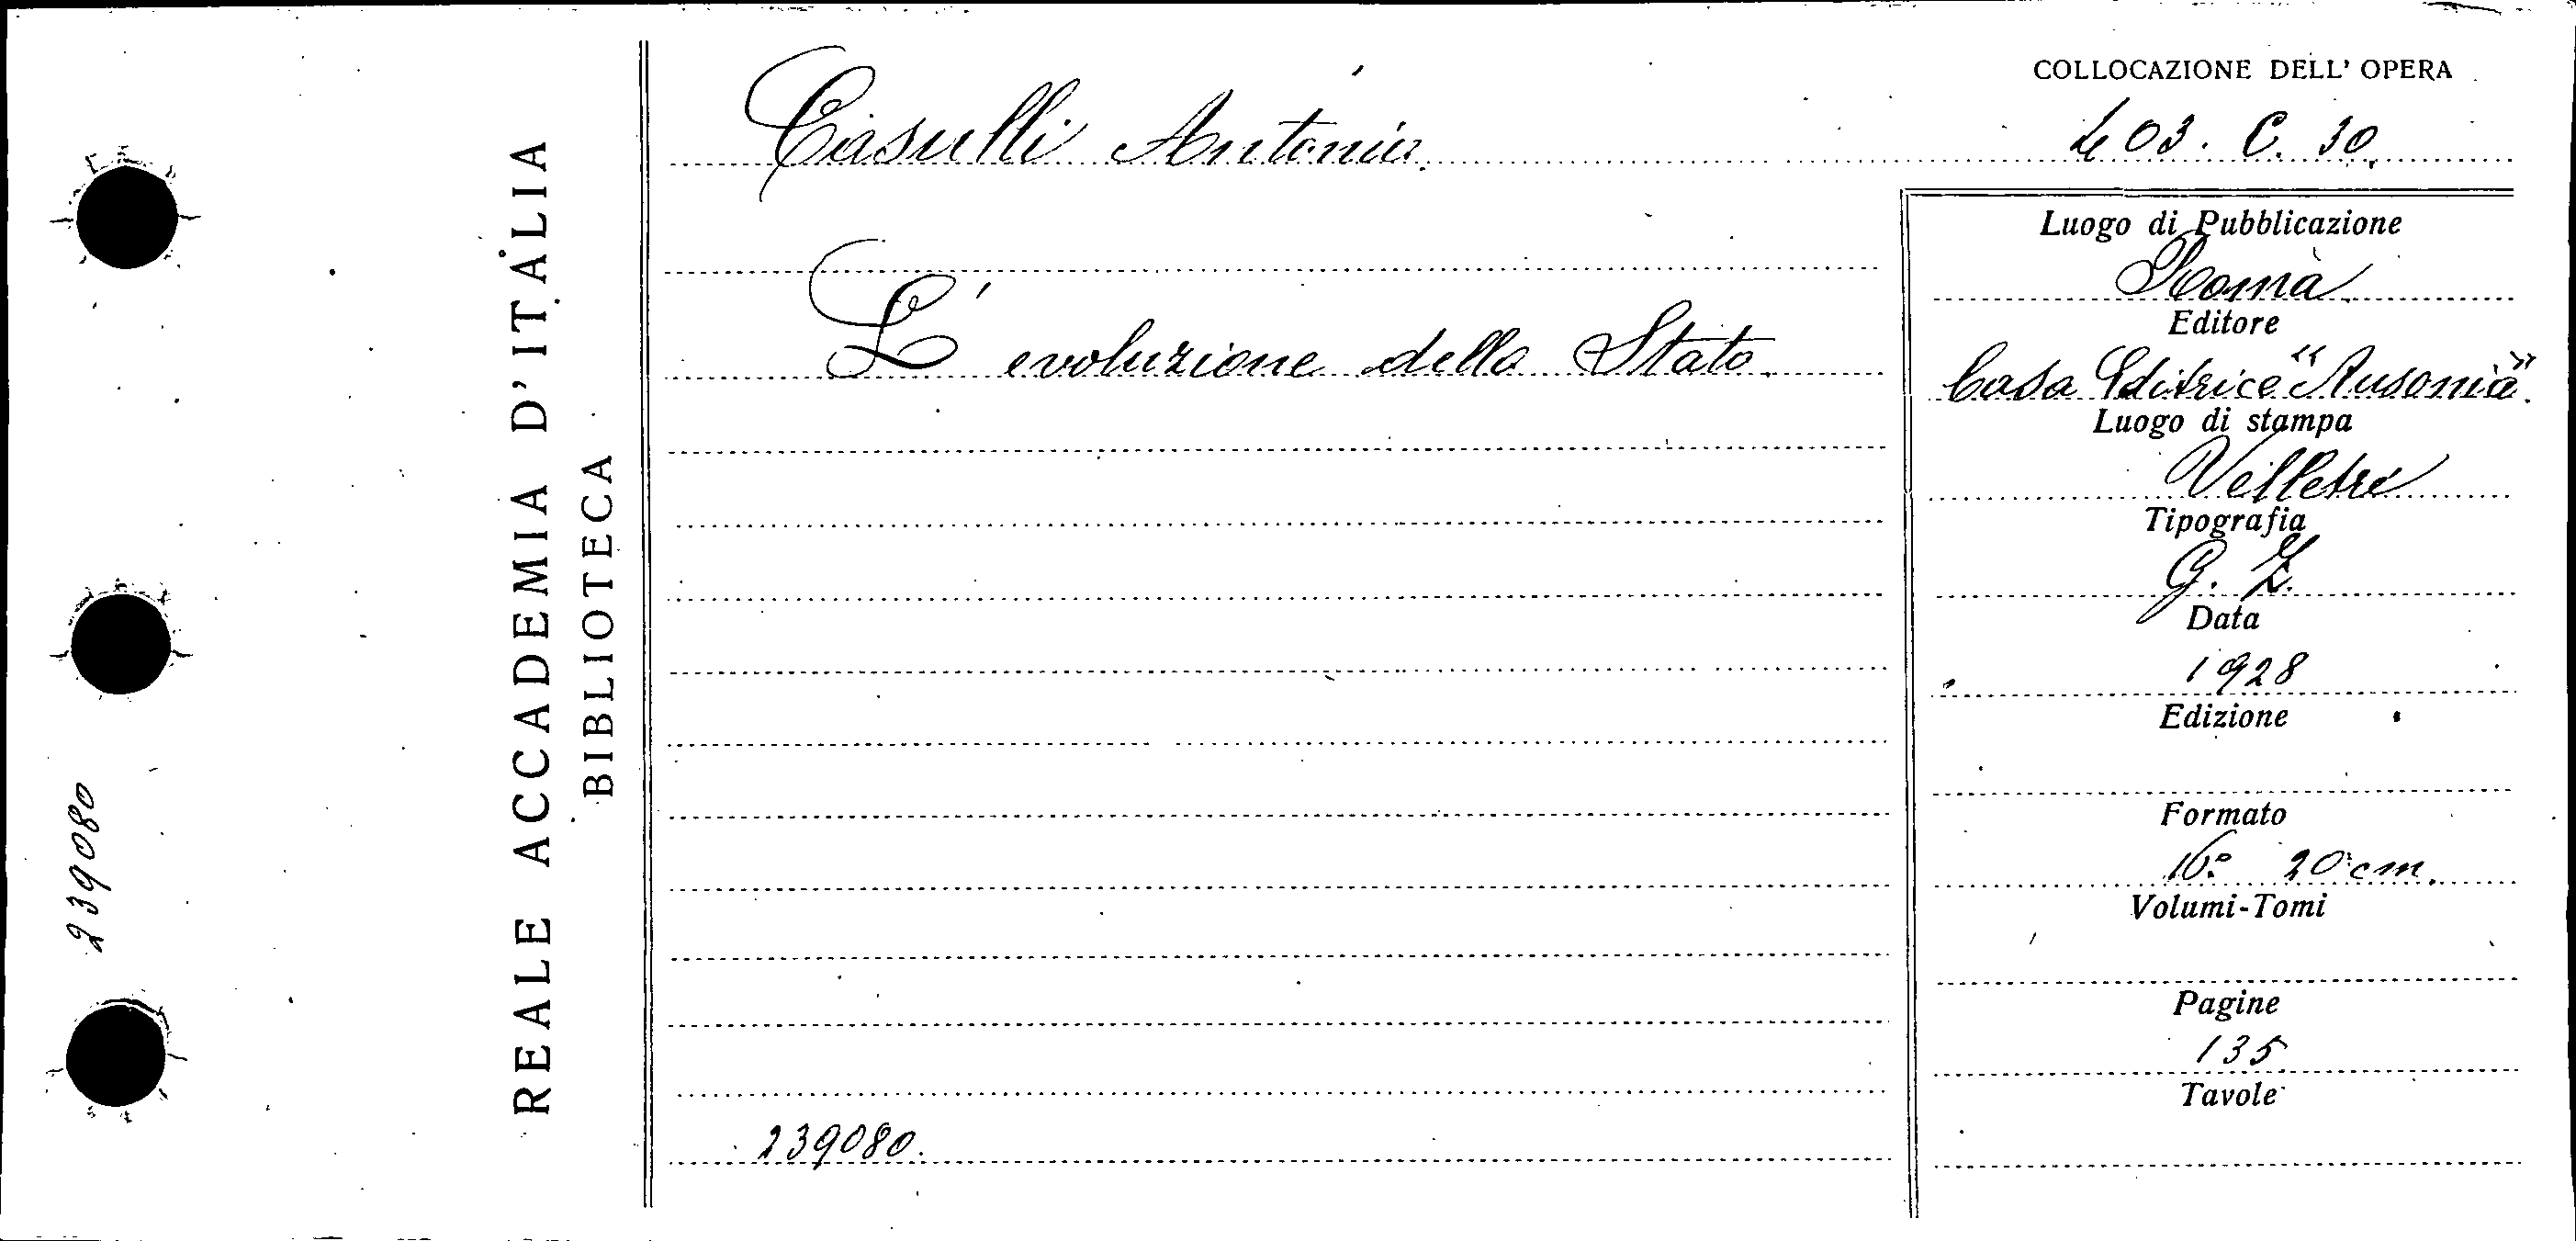 COLLOCAZIONE DELL' OPERA
Casulli Antonio.
403. C. 30.
L' evoluzione dello Stato.
Luogo di Pubblicazione
Roma.
Editore
Casa Editrice "Ausonia".
Luogo di stampa
Velletri
Tipografia
G. Z.
Data
1928
Edizione
Formato
16° 20 cm.
Volumi-Tomi
Pagine
135
Tavole
239080.
REALE ACCADEMIA D'ITALIA
BIBLIOTECA
239080